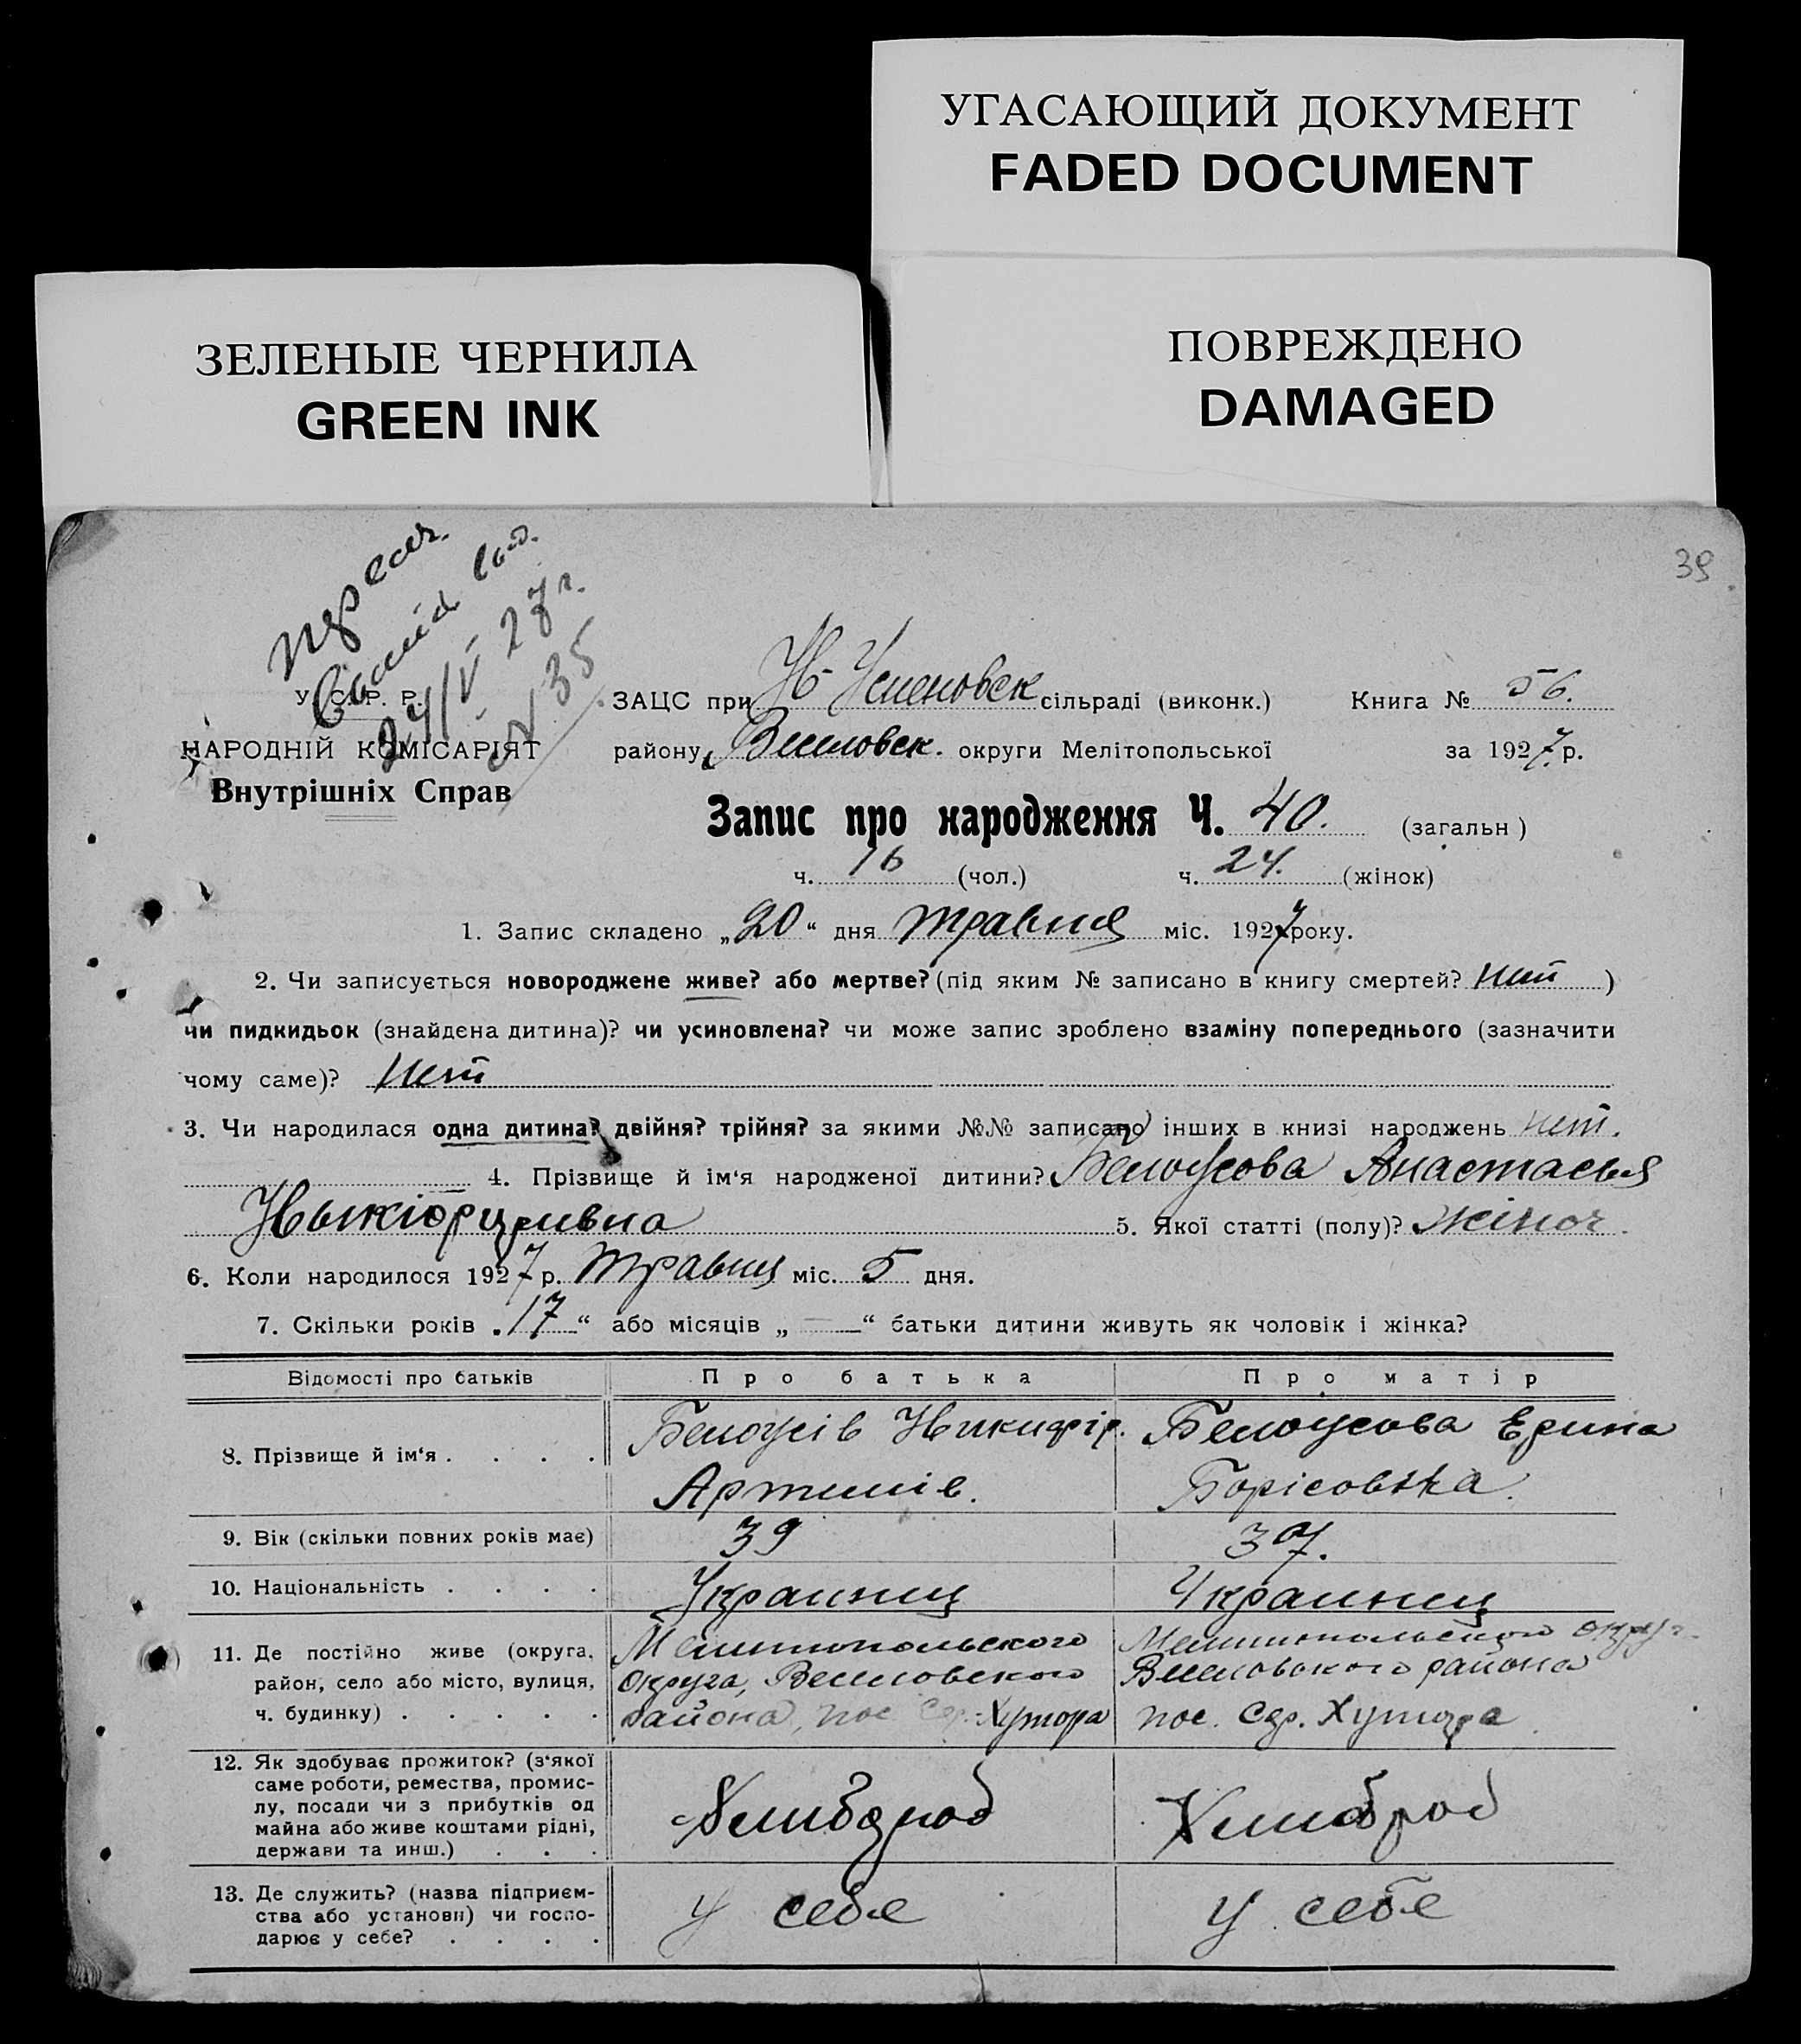 УГАСАЮЩИЙ ДОКУМЕНТ
FADED DOCUMENT
ЗЕЛЕНЫЕ ЧЕРНИЛА
GREEN INK
ПОВРЕЖДЕНО
DAMAGED
39
27г.
N 35
У. С. Р. Р.
НАРОДНІЙ КОМІСАРІЯТ
Внутрішніх Справ
ЗАЦС при Н-Успеновск сільраді (виконк.) Книга № 56.
району Веселовск. округи Мелітопольської за 1927 р.
Запис про народження Ч. 40. (загальн)
ч. 16 (чол.) ч. 24. (жінок)
1. Запис складено „20“ дня травня міс. 1927 року.
2. Чи записується новороджене живе? або мертве? (під яким № записано в книгу смертей? нет )
чи пидкидьок (знайдена дитина)? чи усиновлена? чи може запис зроблено взаміну попереднього (зазначити
чому саме)? нет
3. Чи народилася одна дитина? двійня? трійня? за якими №№ записано інших в книзі народжень нет.
4. Прізвище й ім‘я народженої дитини? Белоусова Анастасья
5. Якої статті (полу)? жіноч.
6. Коли народилося 1927 р. травня міс. 5 дня.
7. Скільки років „17“ або місяців „ — “ батьки дитини живуть як чоловік і жінка?
Відомості про батьків Про батька Про матір
8. Прізвище й ім‘я . . . . Белоусів Никифір. Белоусова Ерина
Артемів. Борісовна.
9. Вік (скільки повних років має) 39 37.
10. Національність . . . . Украинец Украинец
11. Де постійно живе (округа, Мелитопольского Мелитопольского округ
район, село або місто, вулиця, округа, Веселовского Веселовского района
ч. будинку) . . . . . района, пос. Сер. Хутора пос. Сер. Хутора
12. Як здобуває прожиток? (з‘якої
саме роботи, ремества, промис-
лу, посади чи з прибутків од Хлебороб Хлебороб
майна або живе коштами рідні,
держави та инш.) . . .
13. Де служить? (назва підприєм-
ства або установи) чи госпо- у себе у себе
дарює у себе? . . . .